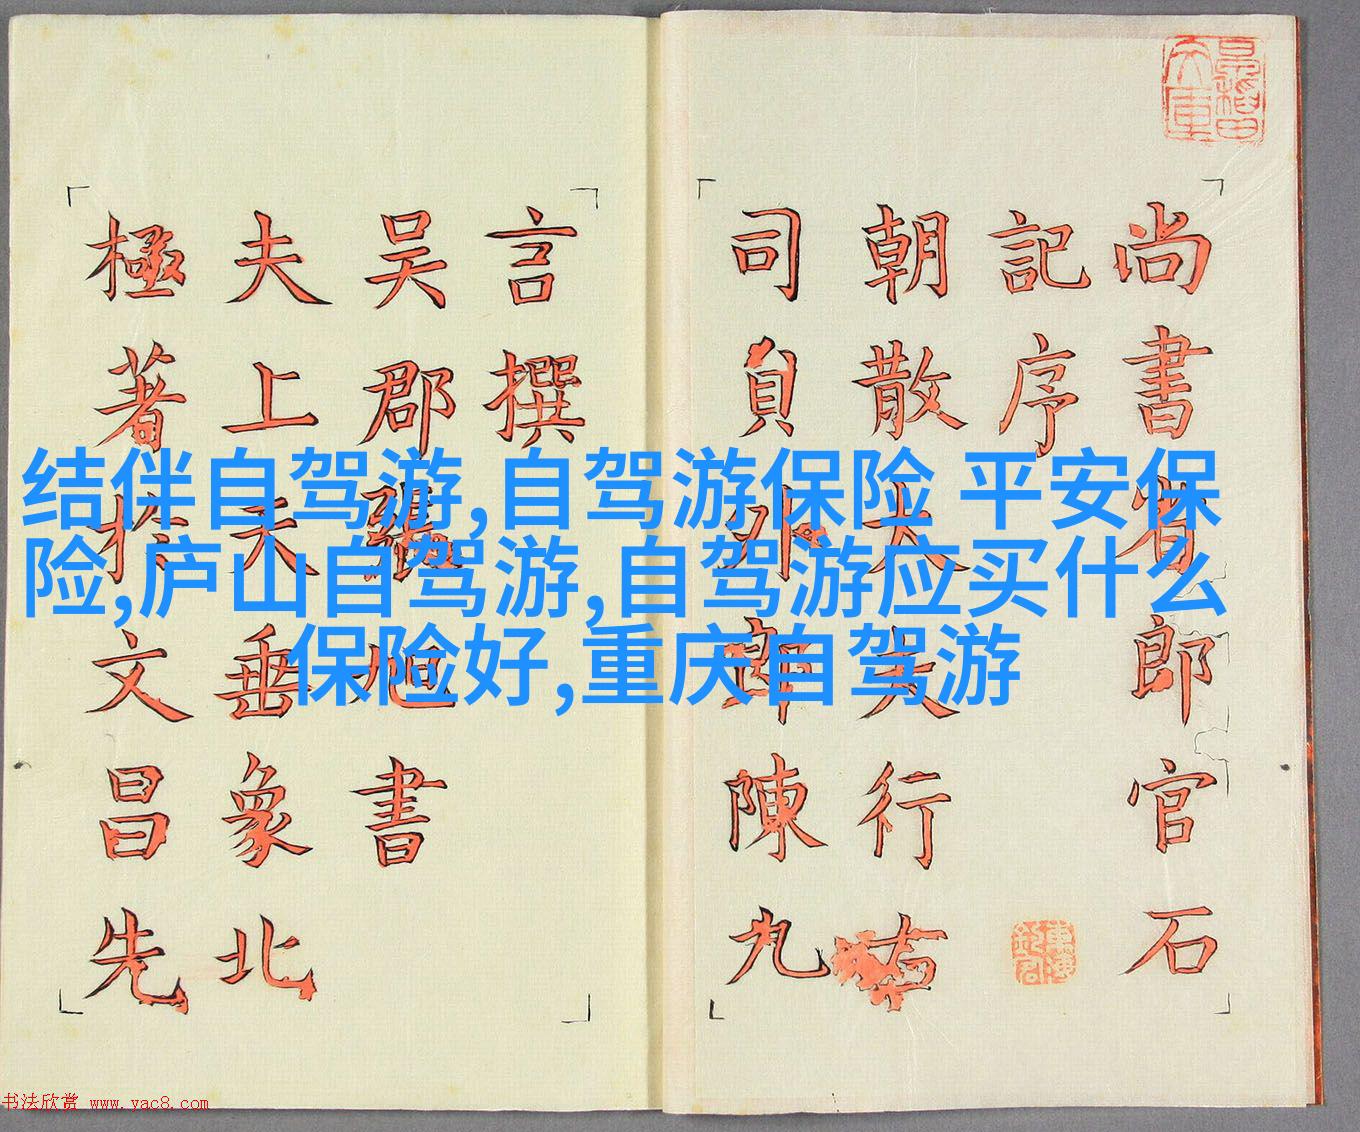 尚書省郎官石
記序
朝散大夫行右
司員外郎陳九
言撰
吴郡張旭書
夫上天垂象北
極著於文昌先
结伴自驾游,自驾游保险 平安保
险,庐山自驾游,自驾游应买什么
保险好,重庆自驾游
书法欣赏 www.yac8.com